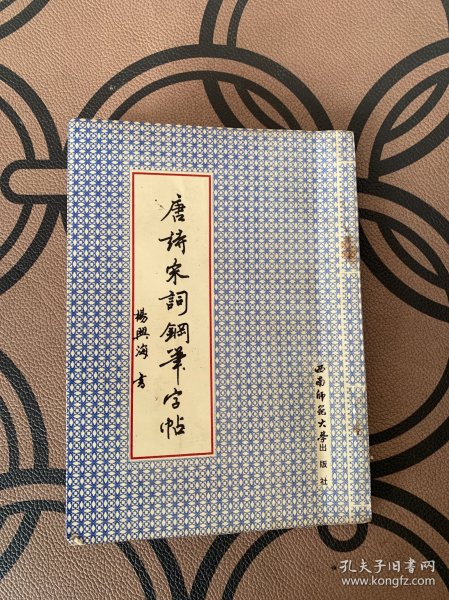 唐詩宋詞鋼筆字帖
楊興海 書
西南師範大學出版社
孔夫子旧书网
www.kongfz.com